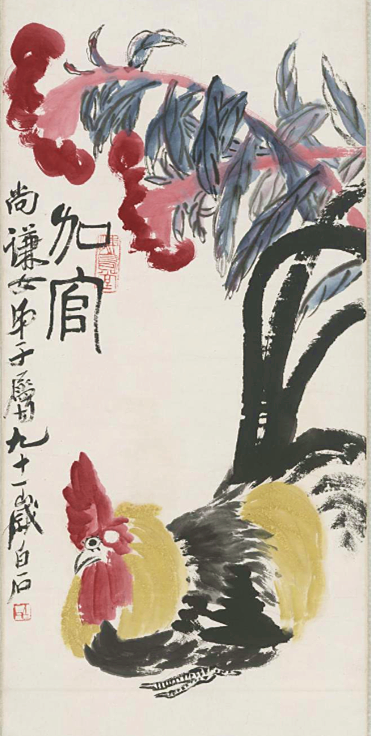 加官
尚謙女弟子屬九十一歲白石